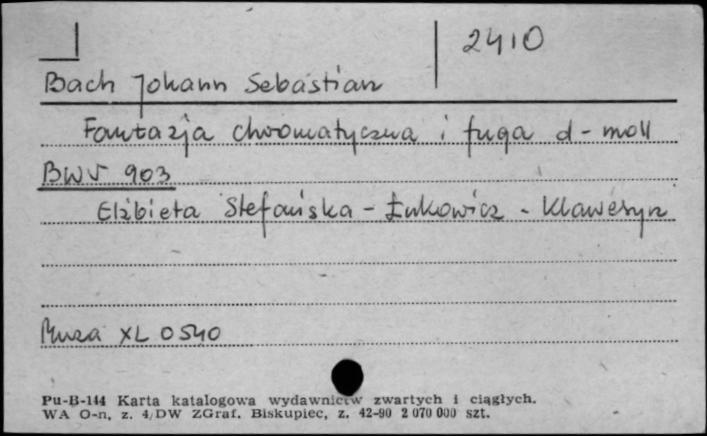 2410
Bach Johann Sebastian
Fantazja chromatyczna i fuga d-moll
BWV 903
Elżbieta Stefańska-Łukowicz - Klawesyn
Muza XL 0540
Pu-B-144 Karta katalogowa wydawnictw zwartych i ciągłych.
WA O-n, z. 4/DW ZGraf. Biskupiec, z. 42-90 2 070 000 szt.